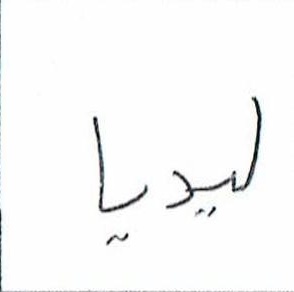 ليديا